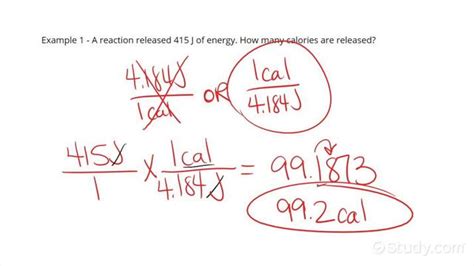 Example 1 - A reaction released 415 J of energy. How many calories are released?
4.184J
1cal
OR
1cal
4.184J
415J
1
X
1cal
4.184J
= 99.1873
99.2cal
Study.com